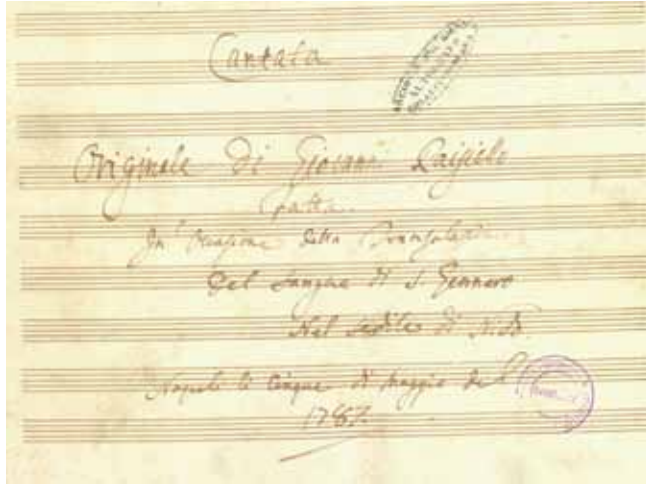 Cantata
Originale di Giovanni Paisielo
fatta
In Occasione della
Del Sangue di S. Gennaro
Nel Sedile di Nido
Napoli li Cinque di Maggio del
1787.